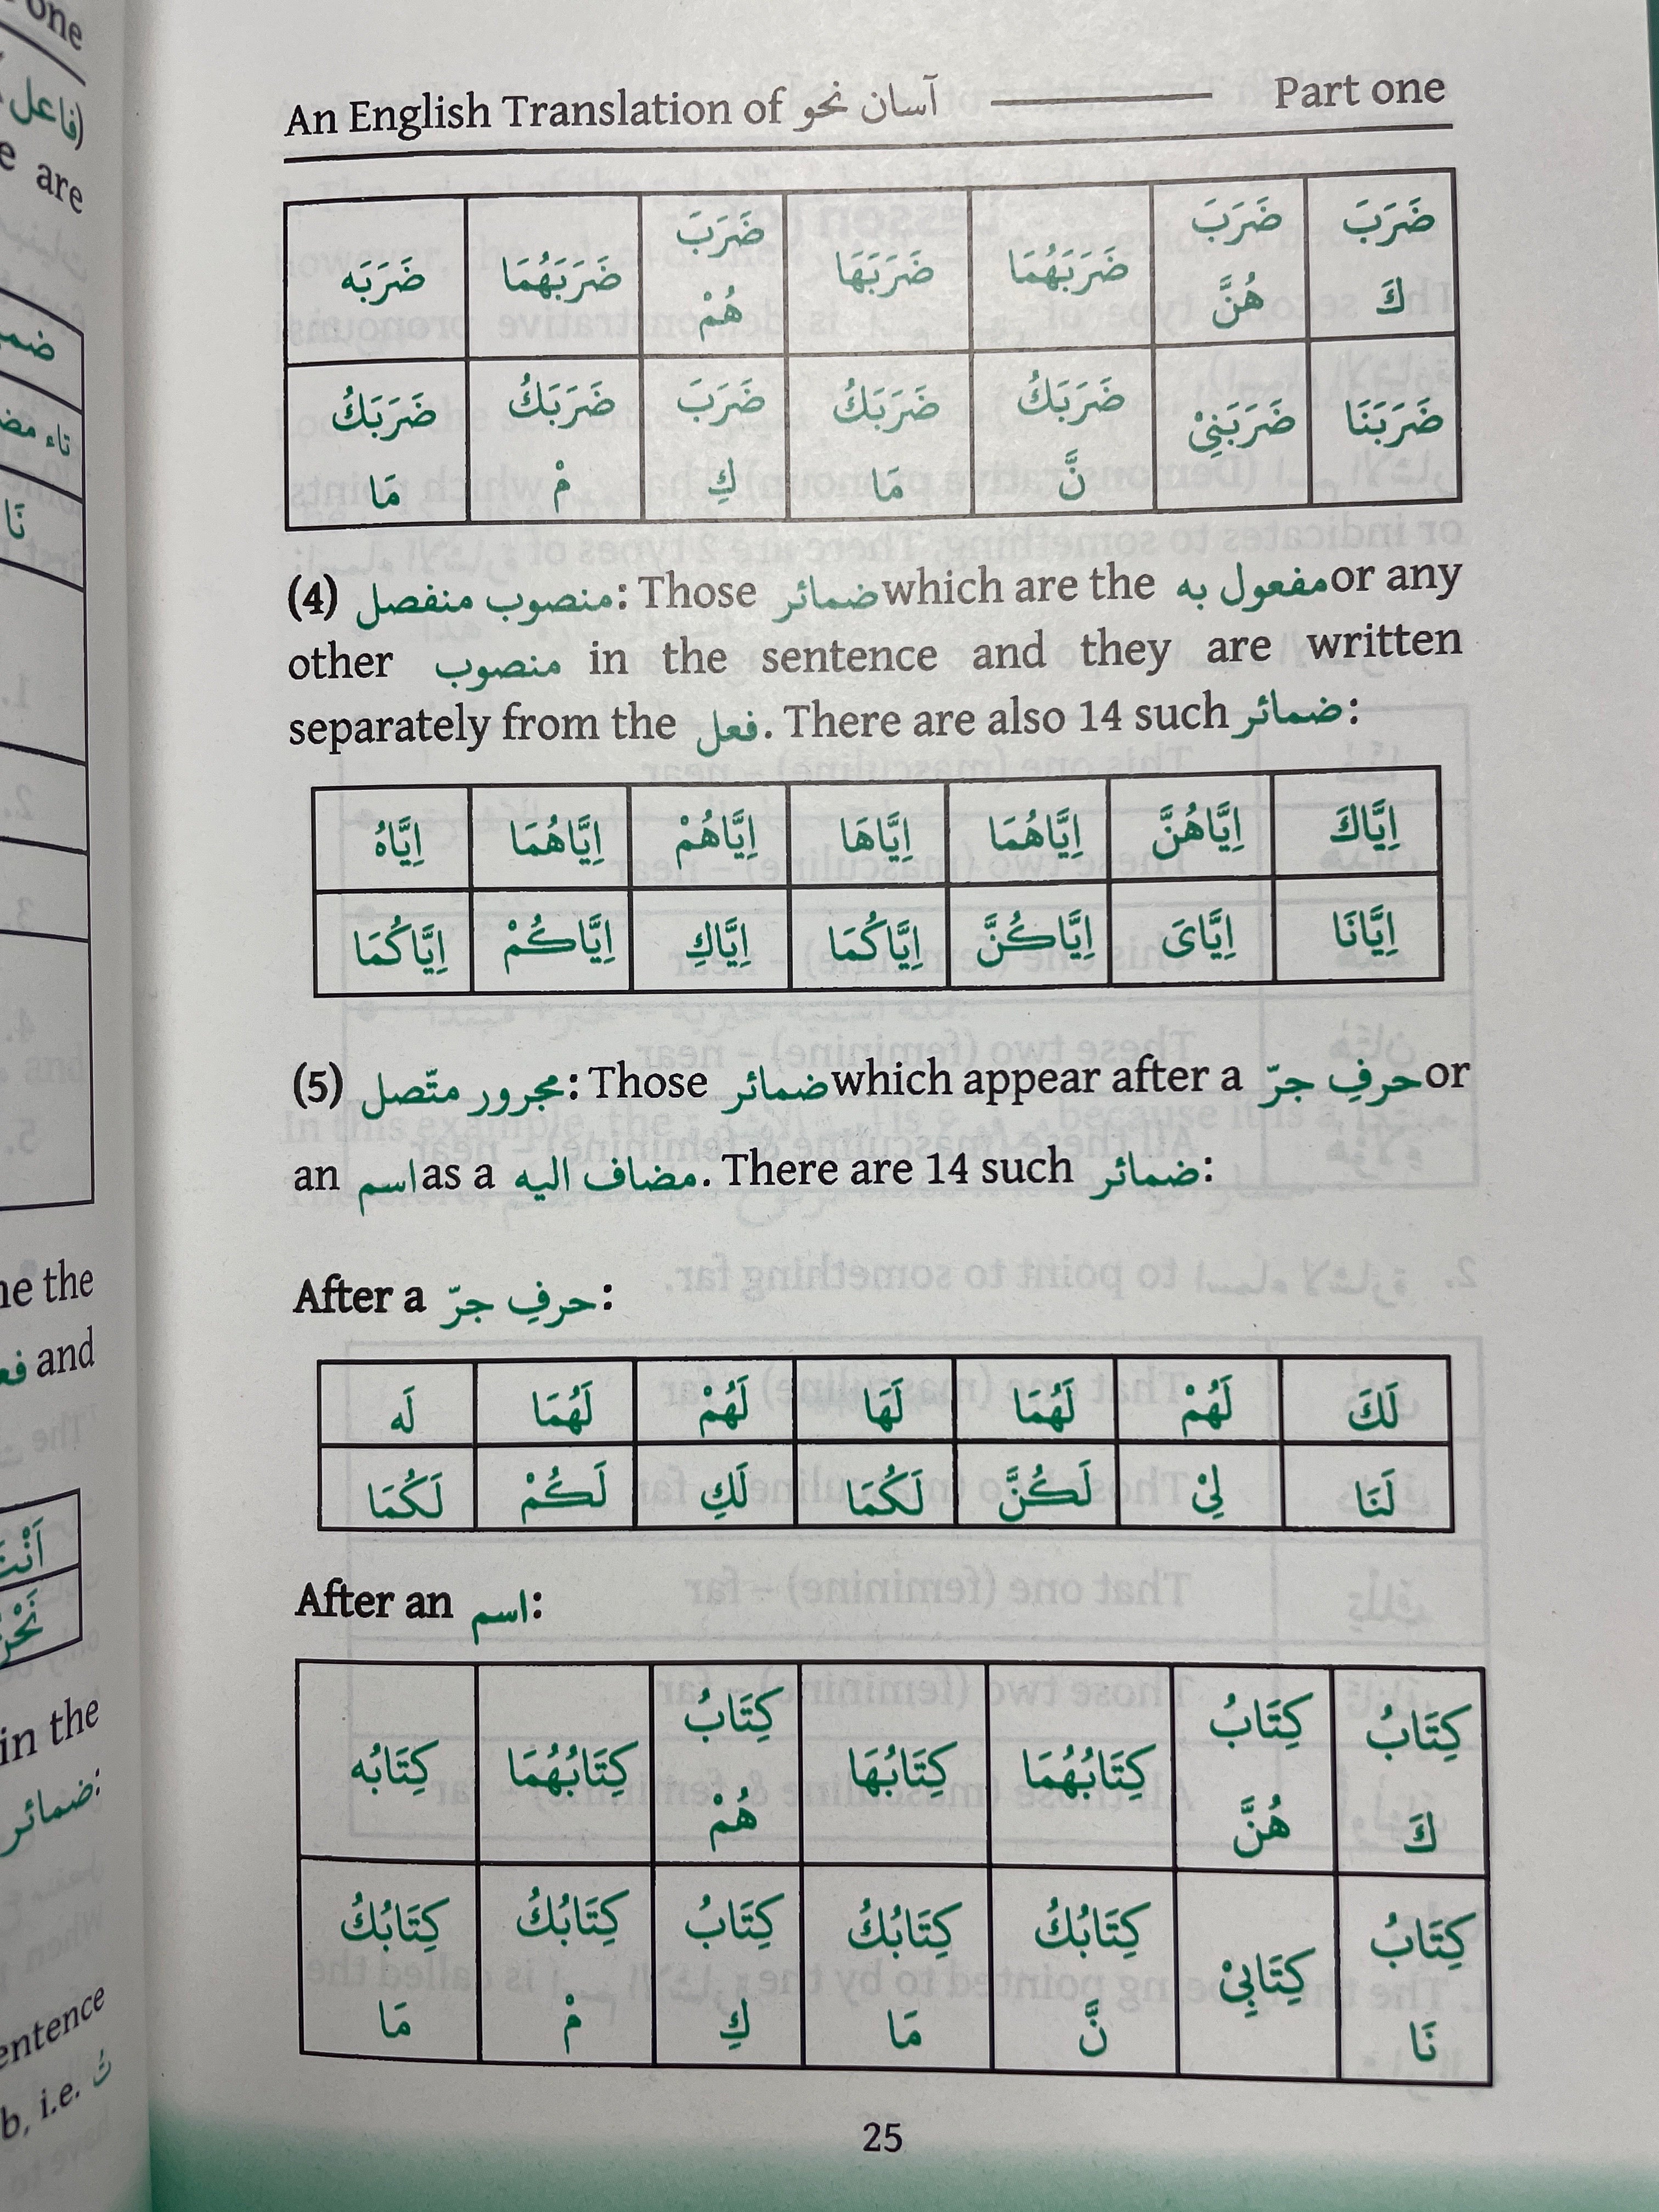 An English Translation of آسان نحو Part one
ضَرَبَه ضَرَبَهُمَا ضَرَبَ هُمْ ضَرَبَهَا ضَرَبَهُمَا ضَرَبَ هُنَّ ضَرَبَ كَ
ضَرَبَكُ مَا ضَرَبَكُ مْ ضَرَبَ كِ ضَرَبَكُ مَا ضَرَبَكُ نَّ ضَرَبَنِيْ ضَرَبَنَا
(4) منصوب منفصل: Those ضمائر which are the مفعول به or any
other منصوب in the sentence and they are written
separately from the فعل. There are also 14 such ضمائر:
اِيَّاهُ اِيَّاهُمَا اِيَّاهُمْ اِيَّاهَا اِيَّاهُمَا اِيَّاهُنَّ اِيَّاكَ
اِيَّاكُمَا اِيَّاكُمْ اِيَّاكِ اِيَّاكُمَا اِيَّاكُنَّ اِيَّاىَ اِيَّانَا
(5) مجرور متّصل: Those ضمائر which appear after a حرفِ جرّ or
an اسم as a مضاف اليه. There are 14 such ضمائر:
After a حرفِ جرّ:
لَه لَهُمَا لَهُمْ لَهَا لَهُمَا لَهُمْ لَكَ
لَكُمَا لَكُمْ لَكِ لَكُمَا لَكُنَّ لِيْ لَنَا
After an اسم:
كِتَابُه كِتَابُهُمَا كِتَابُ هُمْ كِتَابُهَا كِتَابُهُمَا كِتَابُ هُنَّ كِتَابُ كَ
كِتَابُكُ مَا كِتَابُكُ مْ كِتَابُ كِ كِتَابُكُ مَا كِتَابُكُ نَّ كِتَابِيْ كِتَابُ نَا
25